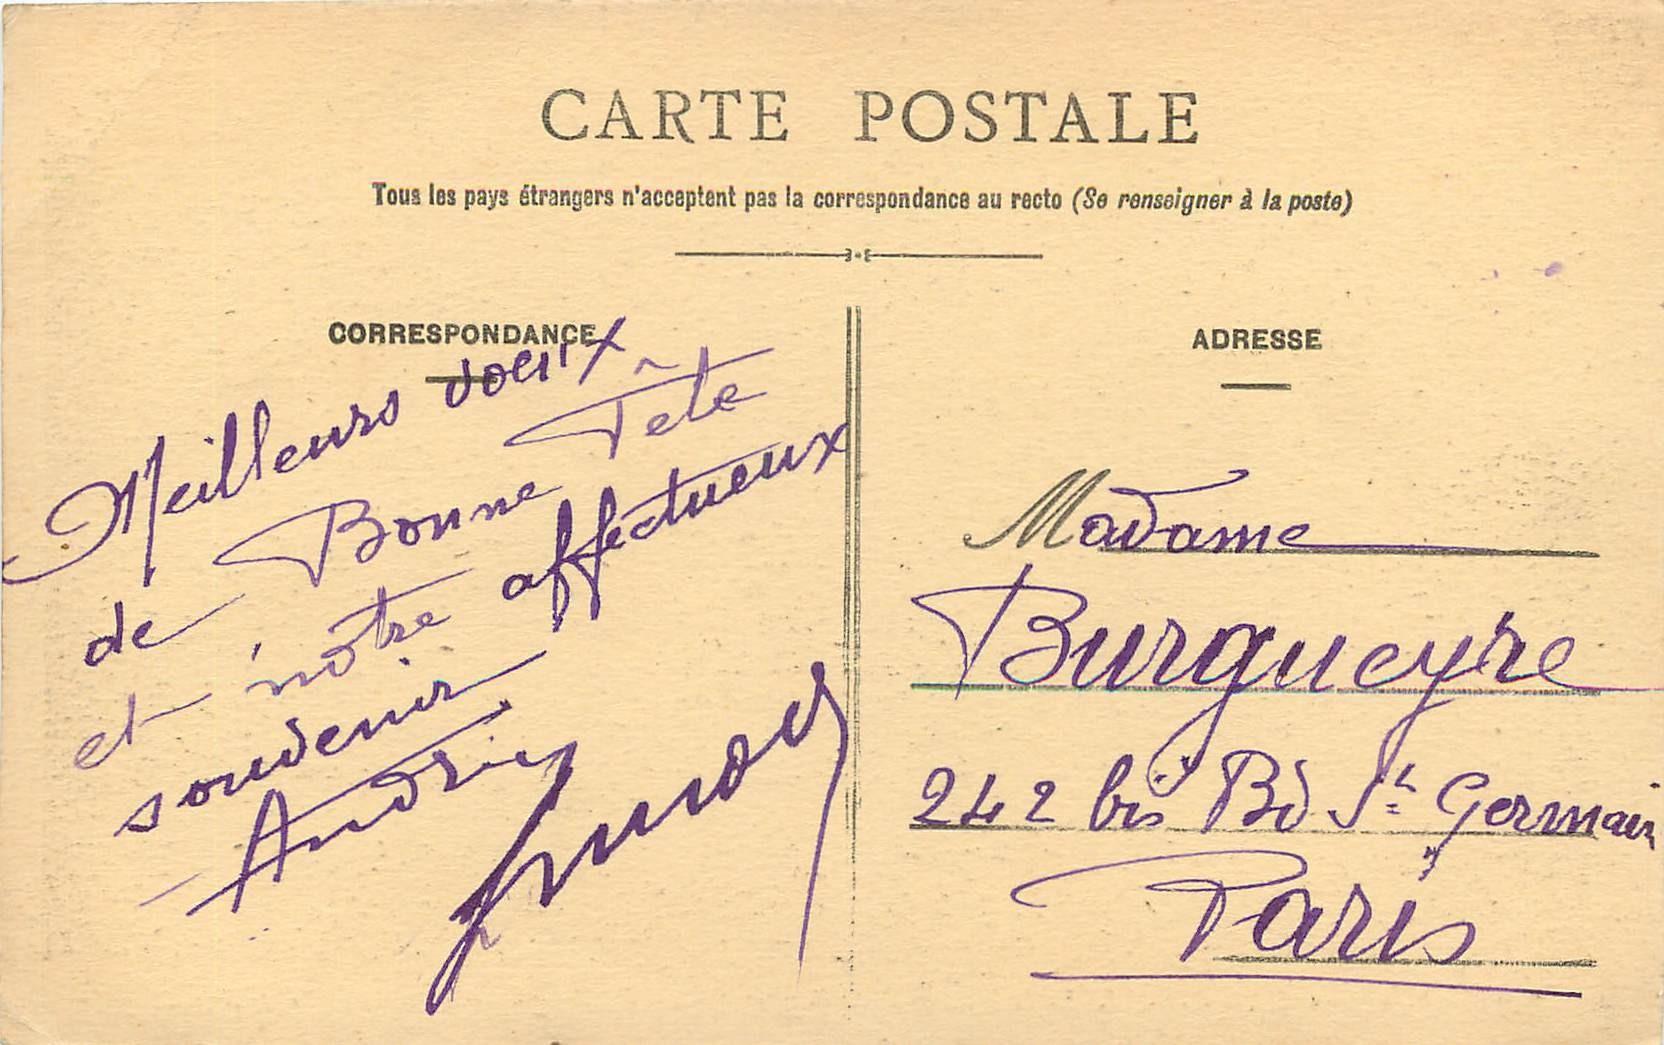 CARTE POSTALE
Tous les pays étrangers n'acceptent pas la correspondance au recto (Se renseigner à la poste)
CORRESPONDANCE
Meilleurs voeux
de Bonne Fête
et notre affectueux
souvenir
ADRESSE
Madame
Burgueyre
242 bis Bd St Germain
Paris